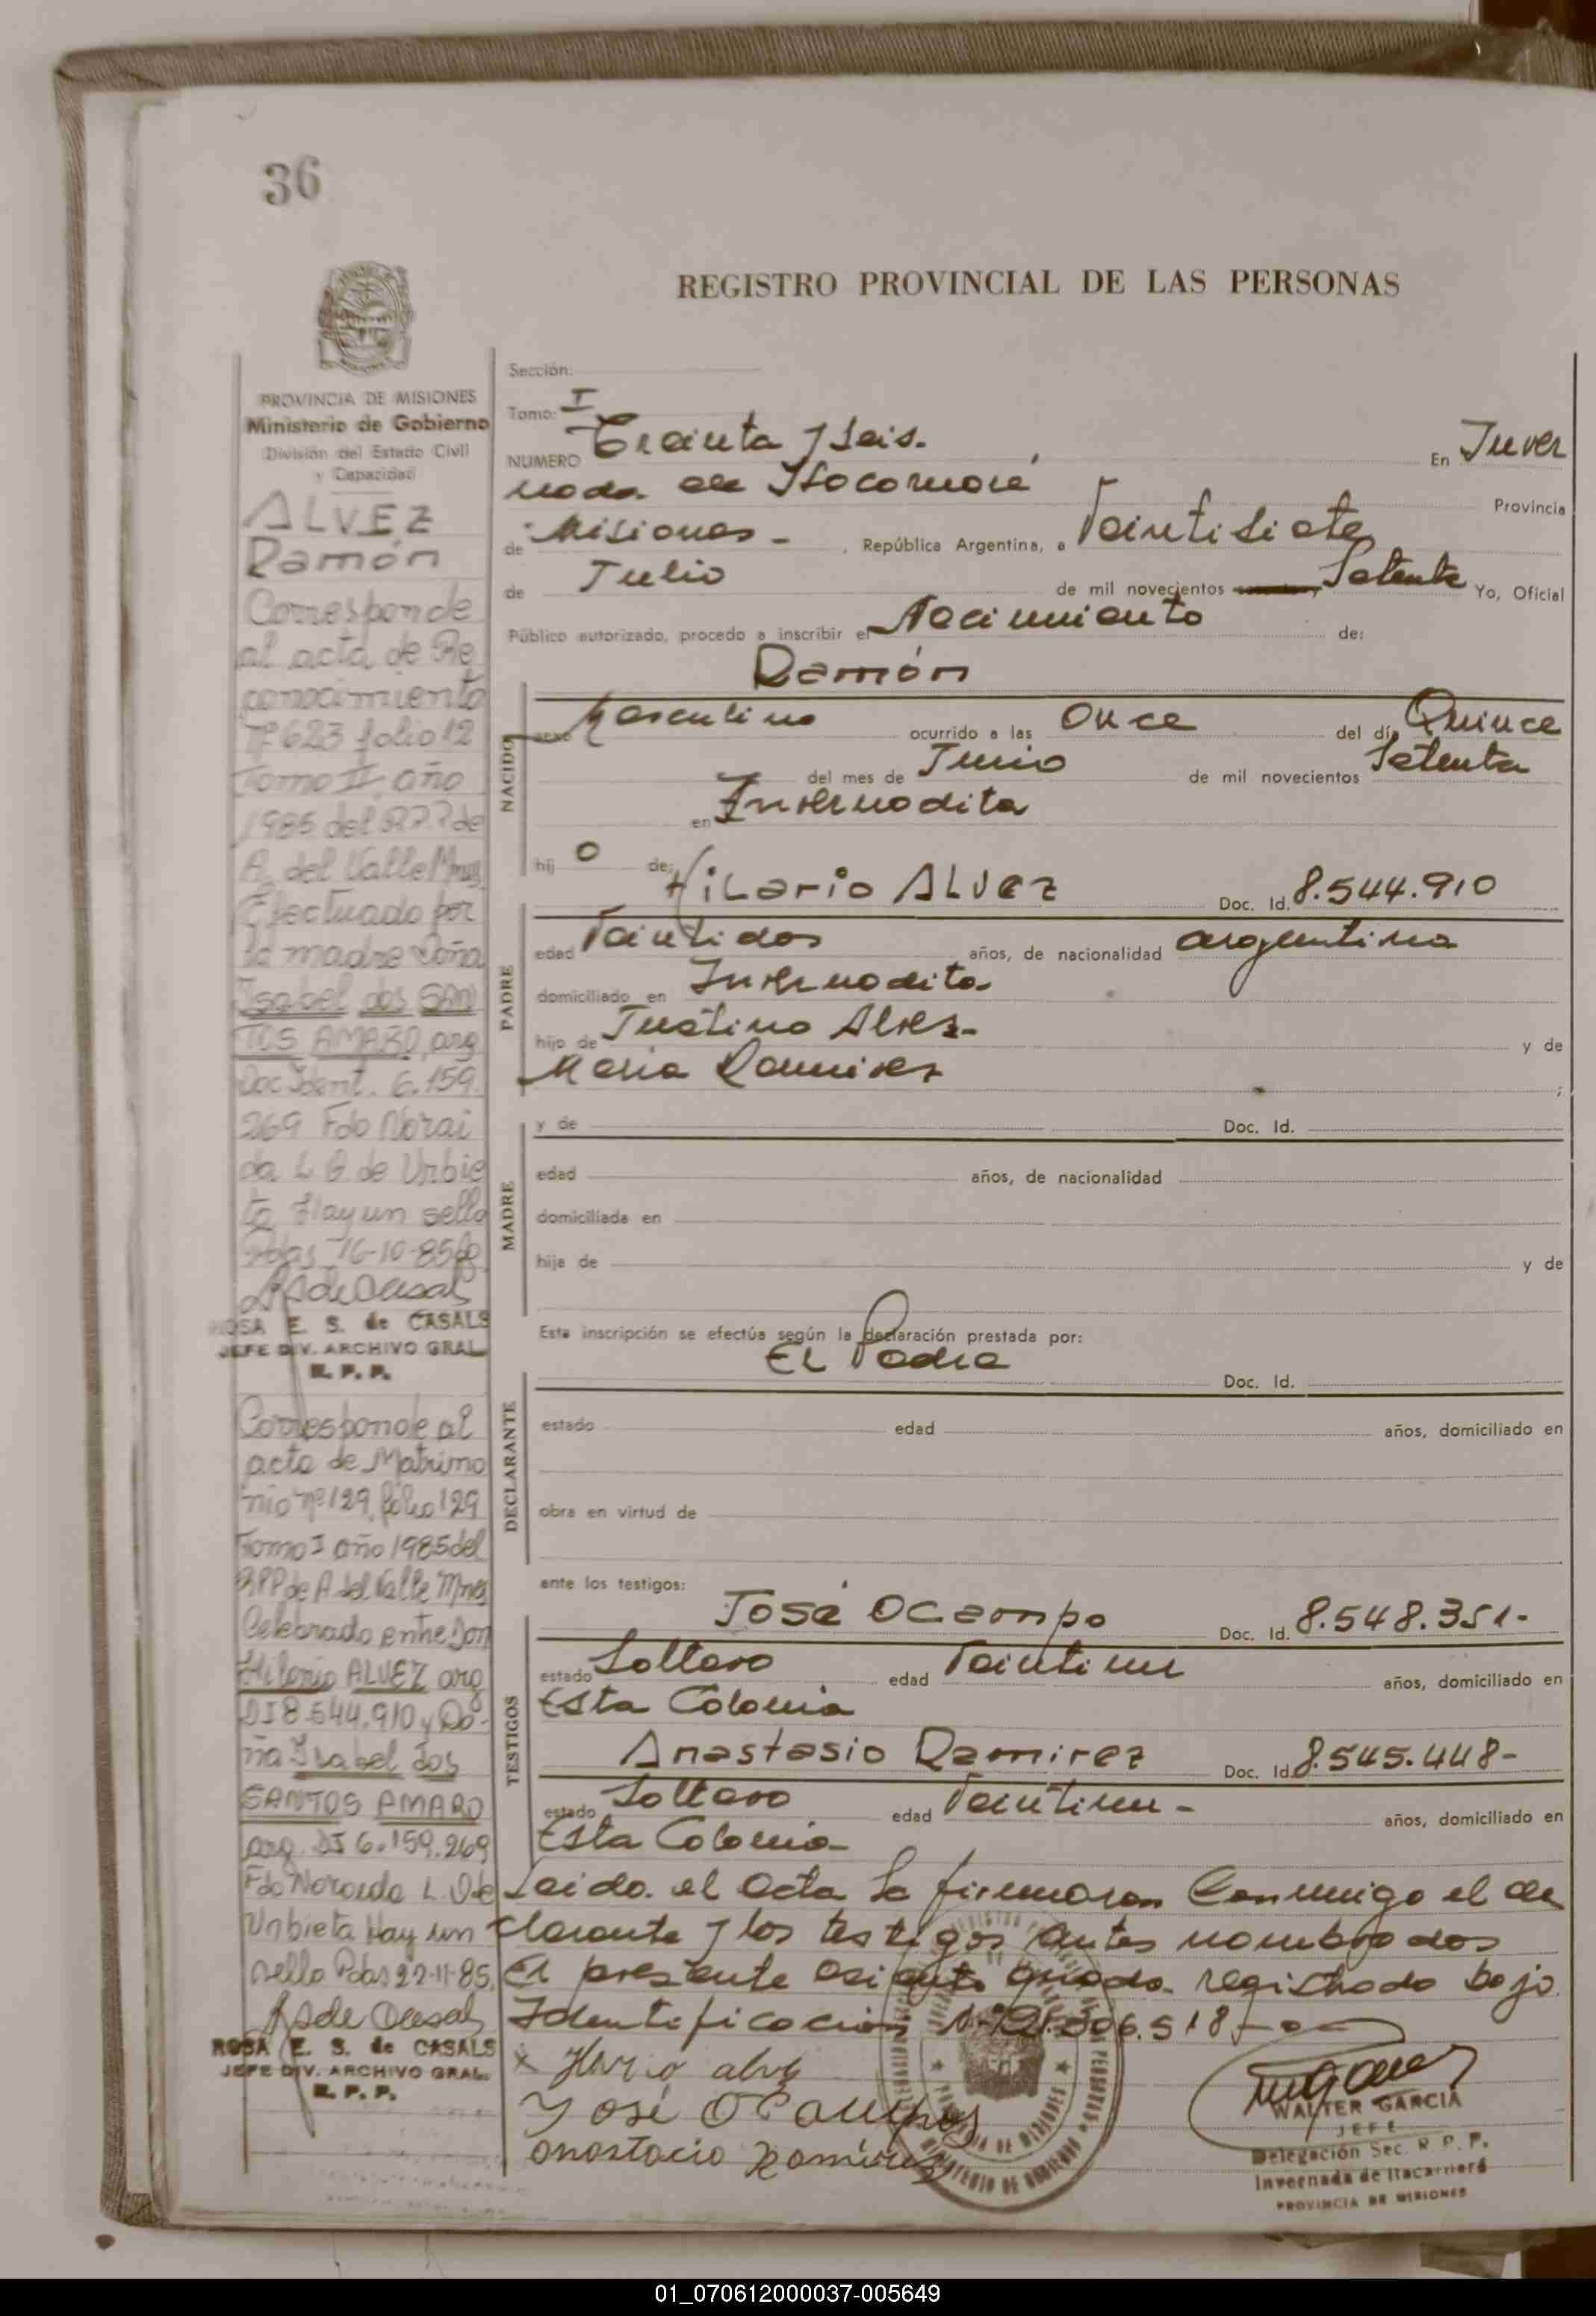 36
REGISTRO PROVINCIAL DE LAS PERSONAS
PROVINCIA DE MISIONES
Ministerio de Gobierno
División del Estado Civil
y Capacidad
ALVEZ
Ramón
Corresponde
al acta de Re
conocimiento
Nº 623 folio 12
Tomo II año
1985 del R.P.P de
A. del Valle Mnes
Efectuado por
la madre Doña
Isabel dos SAN
TOS AMARO, arg
Doc Ident. 6.159.
269 Fdo Norai
da L G. de Urbie
ta Hay un sello
Pdas 16-10-85
ROSA E. S. de CASALS
JEFE DIV. ARCHIVO GRAL
R. P. P.
Corresponde al
acta de Matrimo
nio nº 129, folio 129
Tomo I año 1985 del
RPP de A del Valle Mnes
Celebrado entre Don
Hilario ALVEZ arg
DI 8.544.910 y Do-
ña Isabel dos
SANTOS AMARO
arg. DI 6.159.269
Fdo Noraida L. G de
Urbieta Hay un
sello Pdas 22-11-85.
ROSA E. S. de CASALS
JEFE DIV. ARCHIVO GRAL.
R. P. P.
Sección:
Tomo: I
NUMERO Treinta y Seis. En Inver
nada de Itacaruaré Provincia
de Misiones - , República Argentina, a Veintisiete
de Julio de mil novecientos Setenta Yo, Oficial
Público autorizado, procedo a inscribir el Nacimiento de:
Ramón
NACIDO
sexo Masculino ocurrido a las Once del día Quince
del mes de Junio de mil novecientos Setenta
en Invernadita
hij o de: Hilario ALVEZ Doc. Id. 8.544.910
PADRE
edad Veintidos años, de nacionalidad argentina
domiciliado en Invernadita
hijo de Justino Alvez- y de
Maria Ramirez ;
MADRE
y de Doc. Id.
edad años, de nacionalidad
domiciliada en
hija de y de
Esta inscripción se efectúa según la declaración prestada por:
El Padre Doc. Id.
DECLARANTE
estado edad años, domiciliado en
obra en virtud de
ante los testigos:
José Ocampo Doc. Id. 8.548.351-
TESTIGOS
estado Soltero edad Veintiun años, domiciliado en
Esta Colonia
Anastasio Ramirez Doc. Id. 8.545.448-
estado Soltero edad Veintiun- años, domiciliado en
Esta Colonia
Leido. el acta la firmaron Conmigo el de
clarante y los testigos antes nombrados
El presente asiento queda registrado bajo
Identificacion Nº 21.306.518
x alvez
José Ocampos
anastacio Ramírez
WALTER GARCIA
JEFE
Delegación Sec. R. P. P.
Invernada de Itacaruaré
PROVINCIA DE MISIONES
01_070612000037-005649